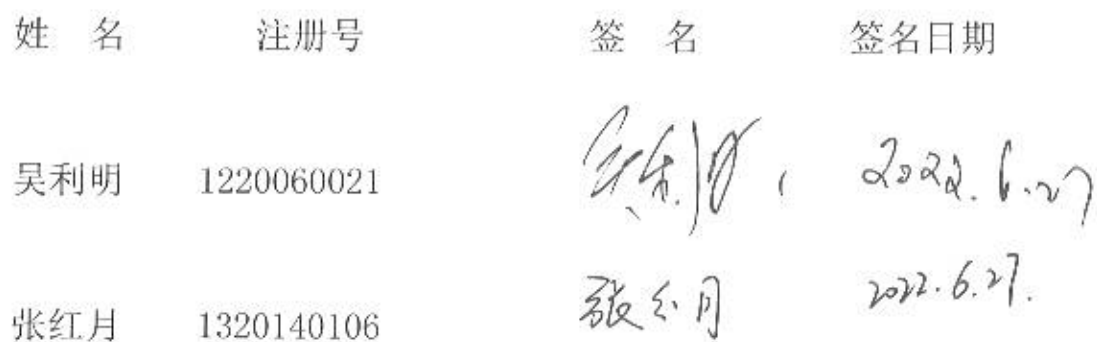 姓 名 注册号 签 名 签名日期
吴利明 1220060021 吴利明 2022.6.27
张红月 1320140106 张红月 2022.6.27.